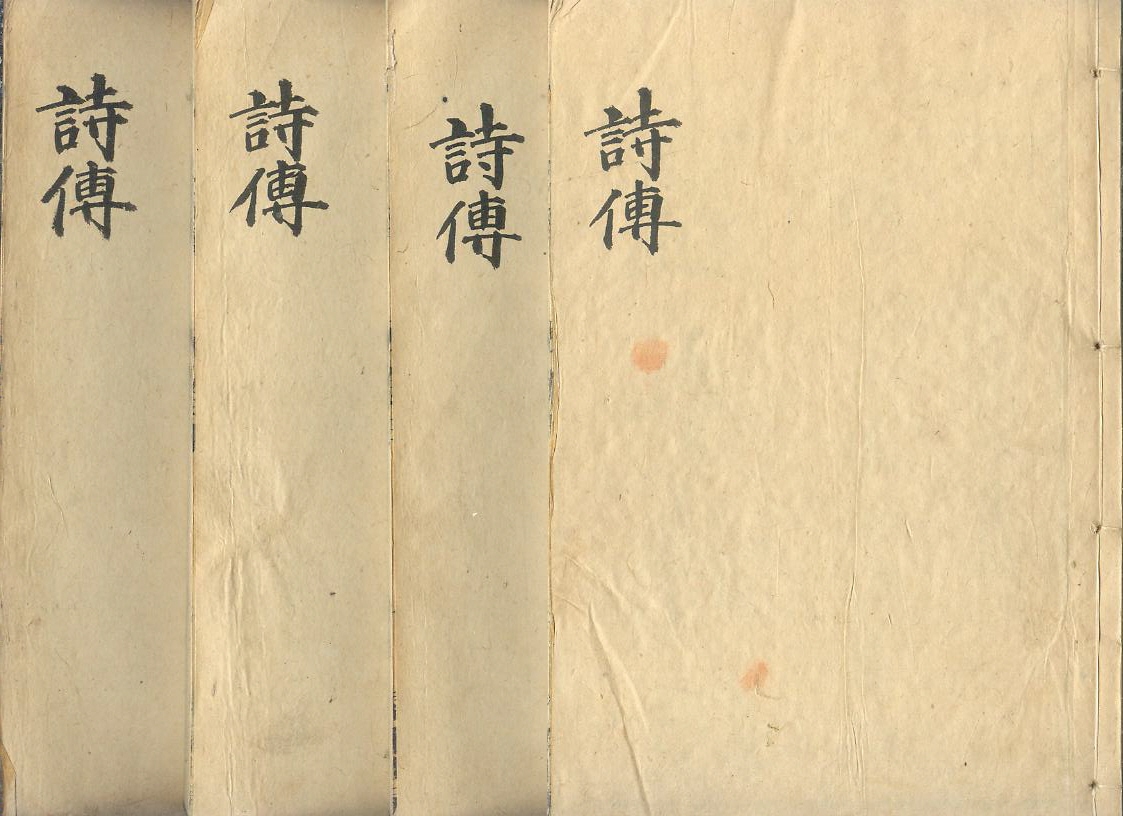 詩傳
詩傳
詩傳
詩傳